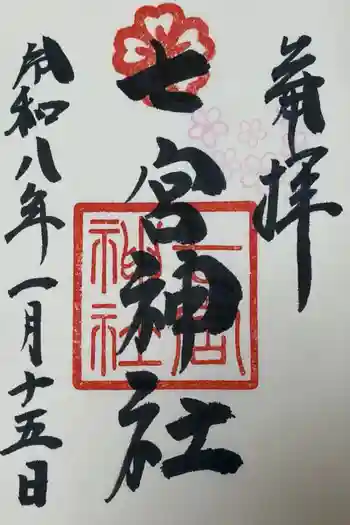 奉拝
七宮神社
令和八年一月十五日
七宮
神社